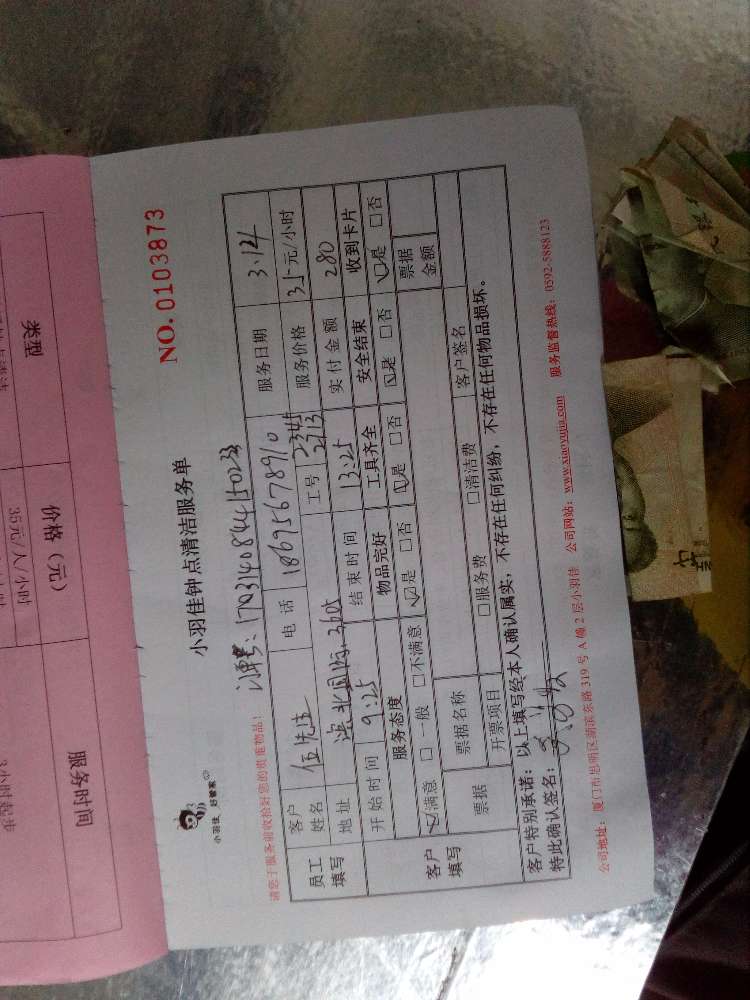 NO. 0103873
小羽佳钟点清洁服务单
小羽佳，好管家
请您于服务前收拾好您的贵重物品！
员工填写 客户姓名 伍先生 电话 18695678910 服务日期 3.12
地址 滨北国际 3605 工号 2345 2213 服务价格 35元/小时
开始时间 9:25 结束时间 13:25 实付金额 280
客户填写 服务态度 物品完好 工具齐全 安全结束 收到卡片
☑满意 □一般 □不满意 ☑是 □否 ☑是 □否 ☑是 □否 ☑是 □否
票据 票据名称 票据金额
开票项目 □服务费 □清洁费 客户签名
客户特别承诺：以上填写经本人确认属实，不存在任何纠纷，不存在任何物品损坏。
特此确认签名：
公司地址：厦门市思明区湖滨东路319号A幢2层小羽佳 公司网站：www.xiaoyujia.com 服务监督热线：0592-5888123
类型 价格（元） 服务时间
35元/人/小时 3小时起步